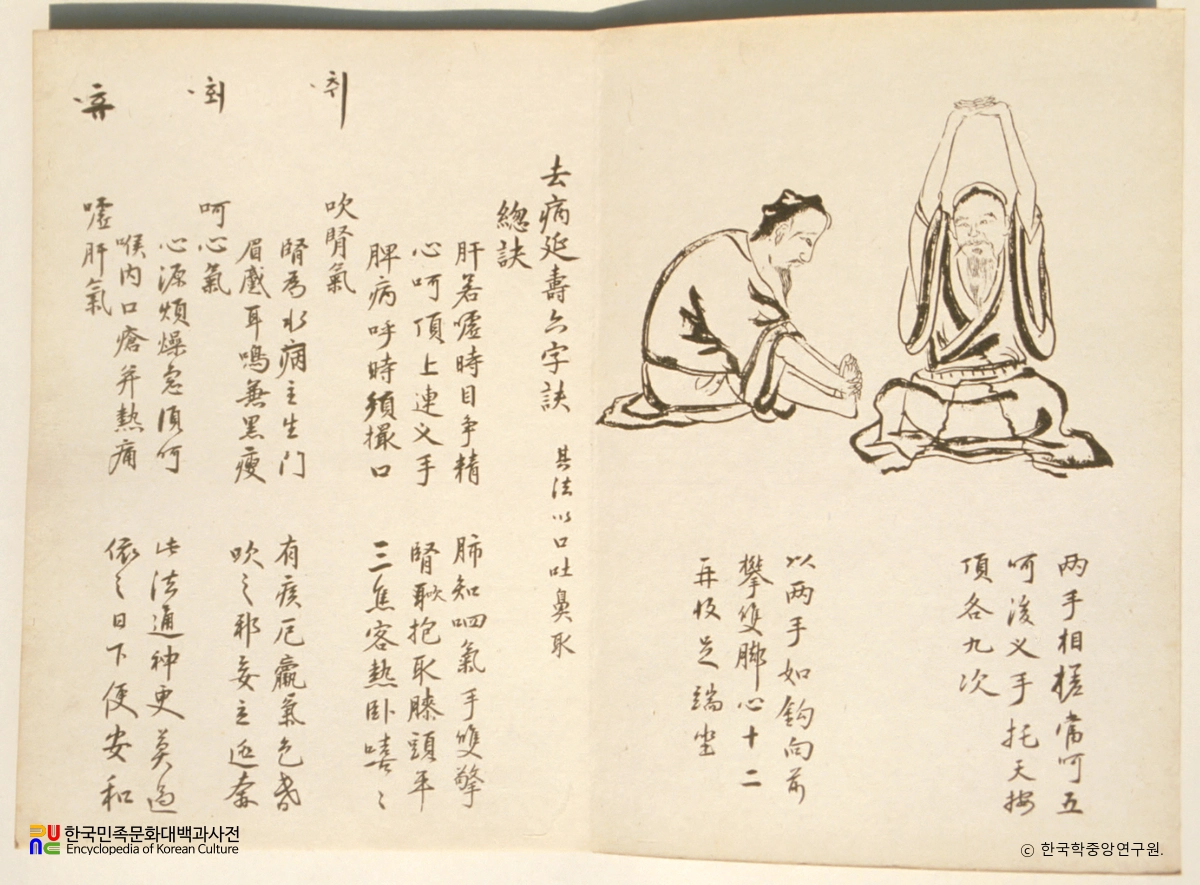 两手相搓常呵五
呵後叉手托天按
頂各九次
以两手如鈎向前
攀雙脚心十二
再收足端坐
去病延壽六字訣 其法以口吐鼻取
總訣
肝若噓時目争精 肺知呬氣手雙擎
心呵頂上連叉手 腎吹抱取膝頭平
脾病呼時須撮口 三焦客熱卧嘻〻
·취 吹腎氣
腎為水病主生門 有疾尫羸氣色昏
眉蹙耳鳴兼黑瘦 吹之邪妄立逃奔
·회 呵心氣
心源煩燥急須呵 此法通神更莫過
喉内口瘡并熱痛 依之日下便安和
·휴 噓肝氣
한국민족문화대백과사전
Encyclopedia of Korean Culture
ⓒ 한국학중앙연구원.